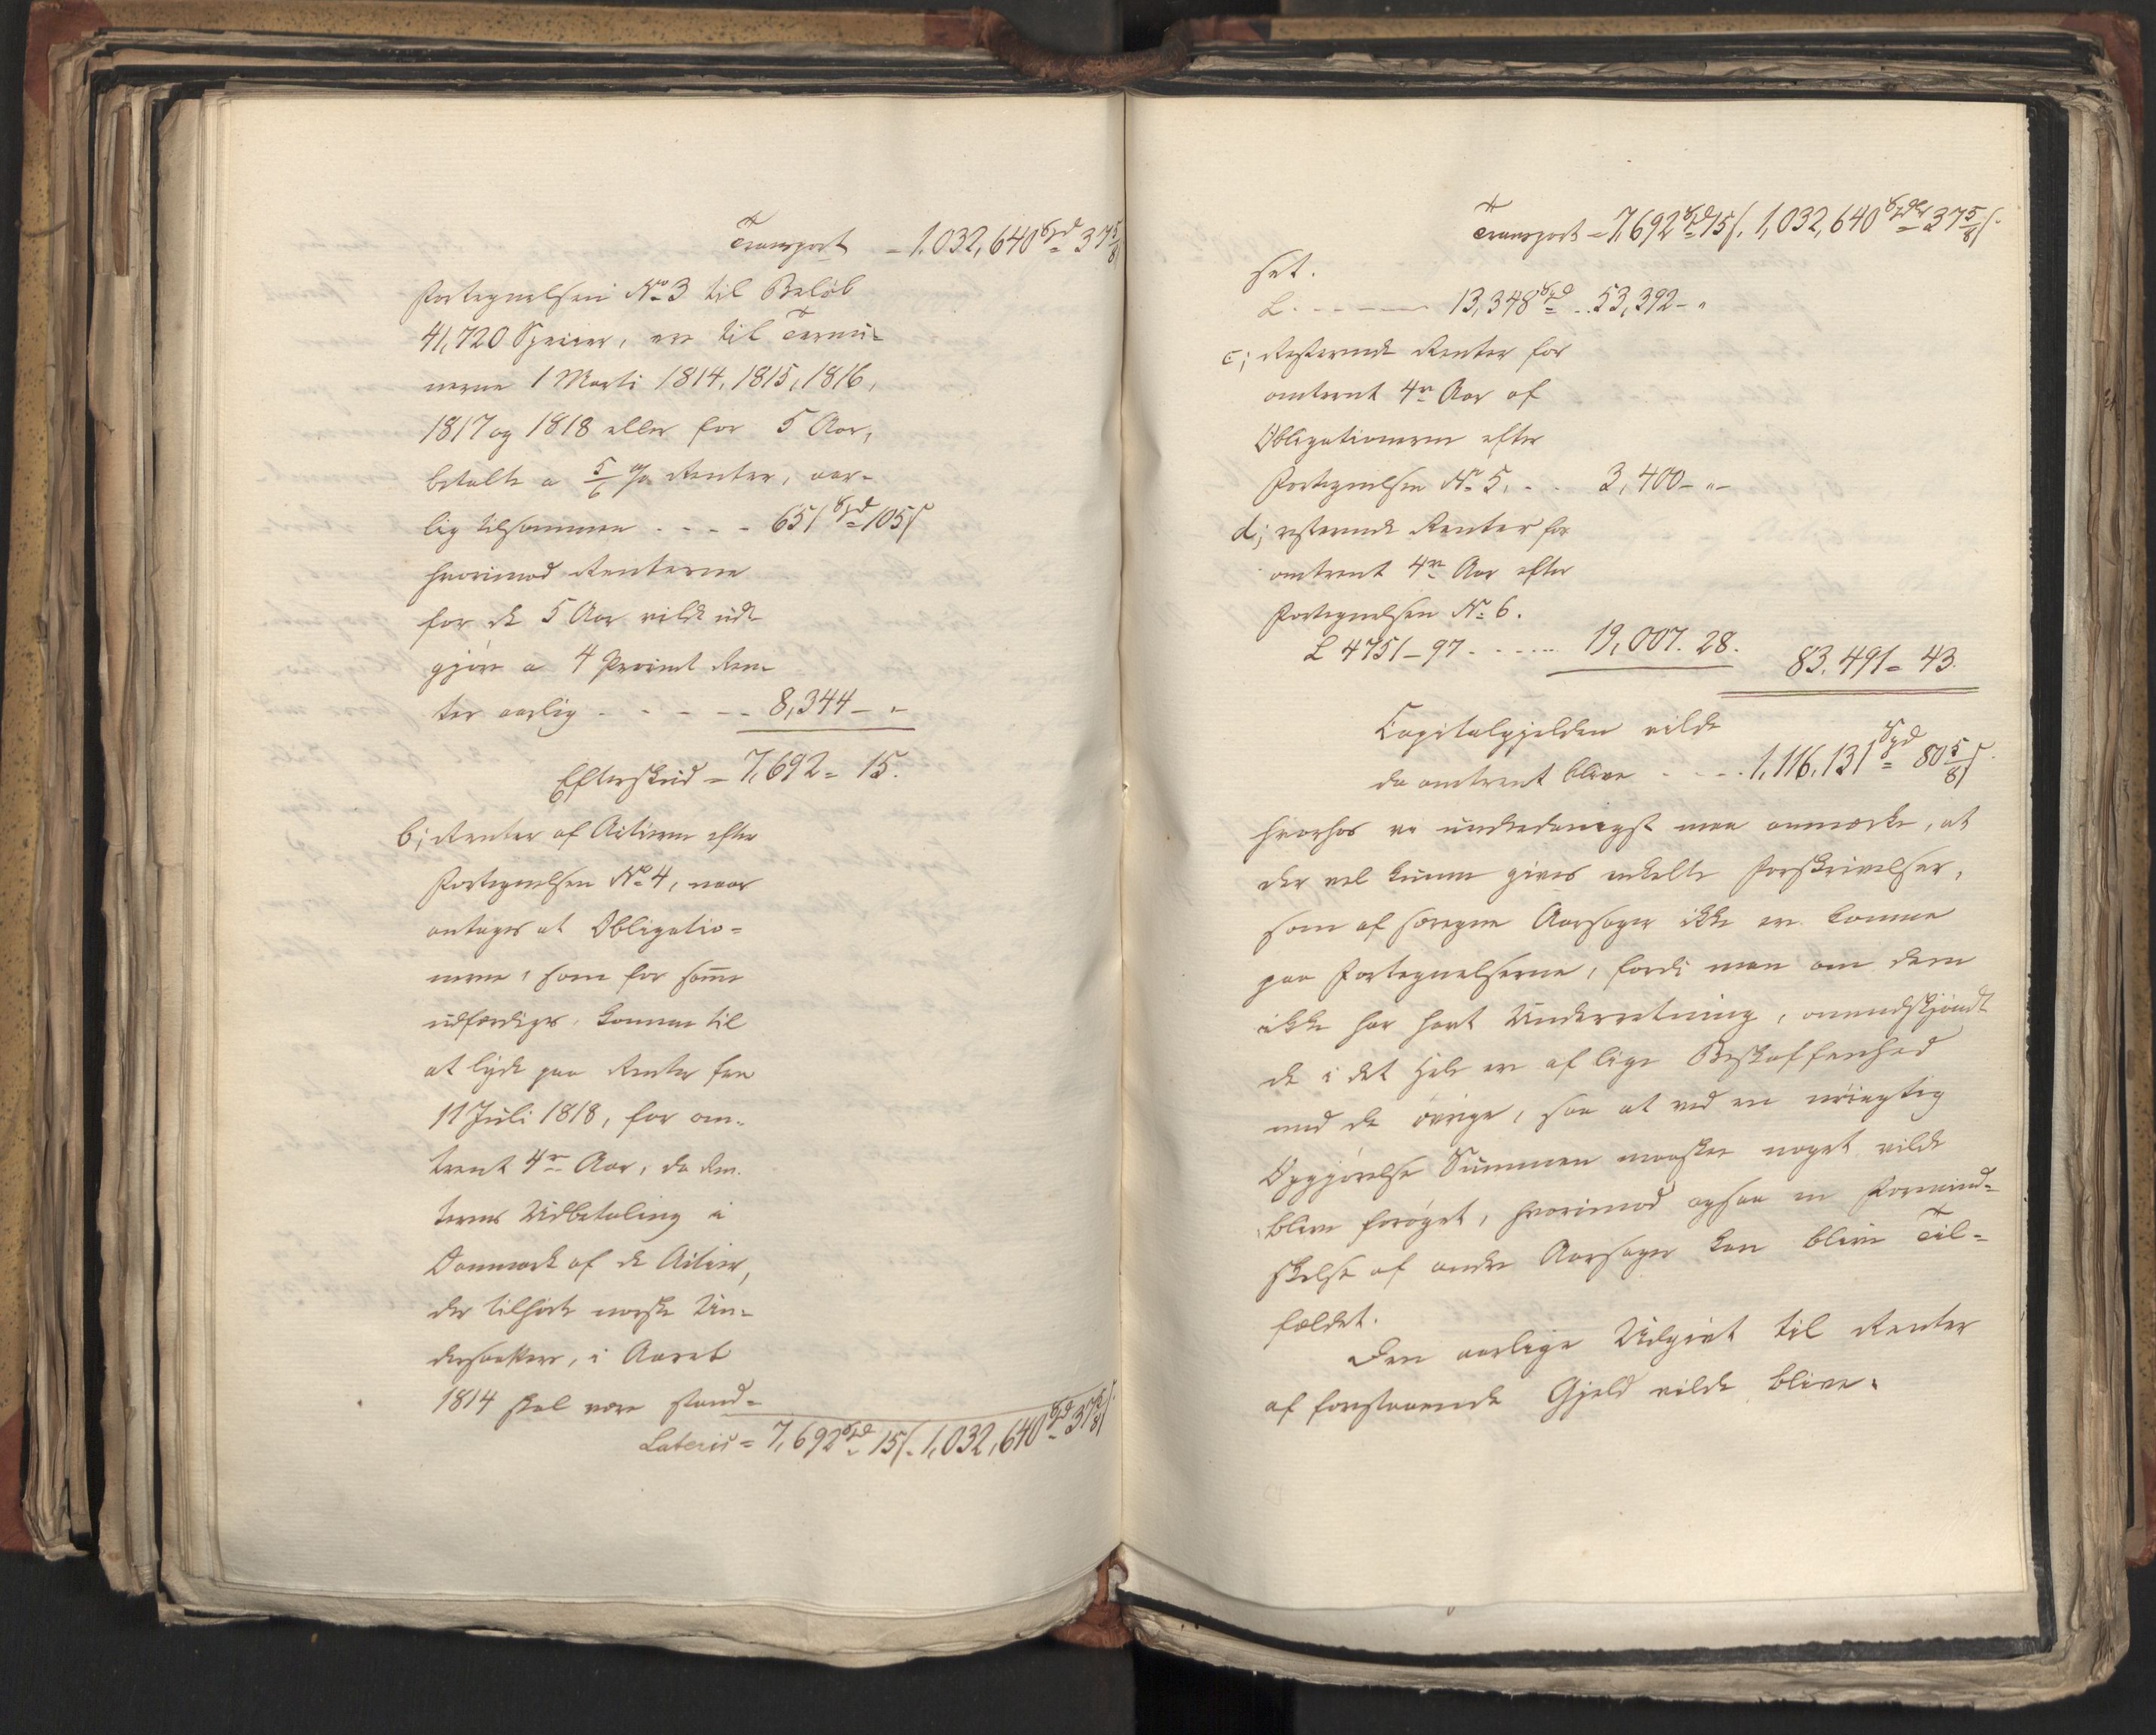 Transport = 1,032,640 Spd 37 5/8
Fortegnelsen No 3 til Beløb
41,720 Specier, ere til Termi-
nerne 1 Marti 1814, 1815, 1816,
1817 og 1818 eller for 5 Aar,
betalte a 5/6 % Renter, aar-
lig tilsammen . . . . 651 Spd 105 s
hvorimod Renterne
for de 5 Aar vilde ud-
gjøre a 4 Procent Ren-
ter aarlig . . . . . 8,344 - "-
Efterskud = 7,692 = 15.
b; Renter af Actierne efter
Fortegnelsen No 4, naar
antages at Obligatio-
nerne, som for samme
udfærdiges, komme til
at lyde paa Renter fra
11 Juli 1818, for om-
trent 4re Aar, da Ren-
ternes Udbetaling i
Danmark af de Actier,
der tilhørte norske Un-
dersaatter, i Aaret
1814 skal være stand-
Lateris = 7,692 Spd 15 s. 1,032,640 Spd 37 5/8 s.
Transport = 7,692 Spd 15 s. 1,032,640 Spdlr 37 5/8 s.
set.
L. - - - - 13,348 Spd . . 53,392 - "
c; Resterende Renter for
omtrent 4re Aar af
Obligationerne efter
Fortegnelsen No 5. . . 3,400 - "-
d; resterende Renter for
omtrent 4re Aar efter
Fortegnelsen No 6.
L 4751 - 97 . . . . . 19,007. 28.
83,491 = 43.
Capitalgjelden vilde
da omtrent blive . . . . 1,116,131 Spd 80 5/8 s.
hvorhos vi underdanigst maa anmærke, at
der vel kunne gives enkelte Forskrivelser,
som af saregne Aarsager ikke ere komne
paa Fortegnelserne, fordi man om dem
ikke har havt Underretning, omendskjøndt
de i det Hele ere af lige Beskaffenhed
med de øvrige, saa at ved en nøiagtig
Opgjørelse Summen maaskee noget vilde
blive forøget, hvorimod ogsaa en Formind-
skelse af andre Aarsager kan blive Til-
fældet.
Den aarlige Udgivt til Renter
af forstaaende Gjeld vilde blive.